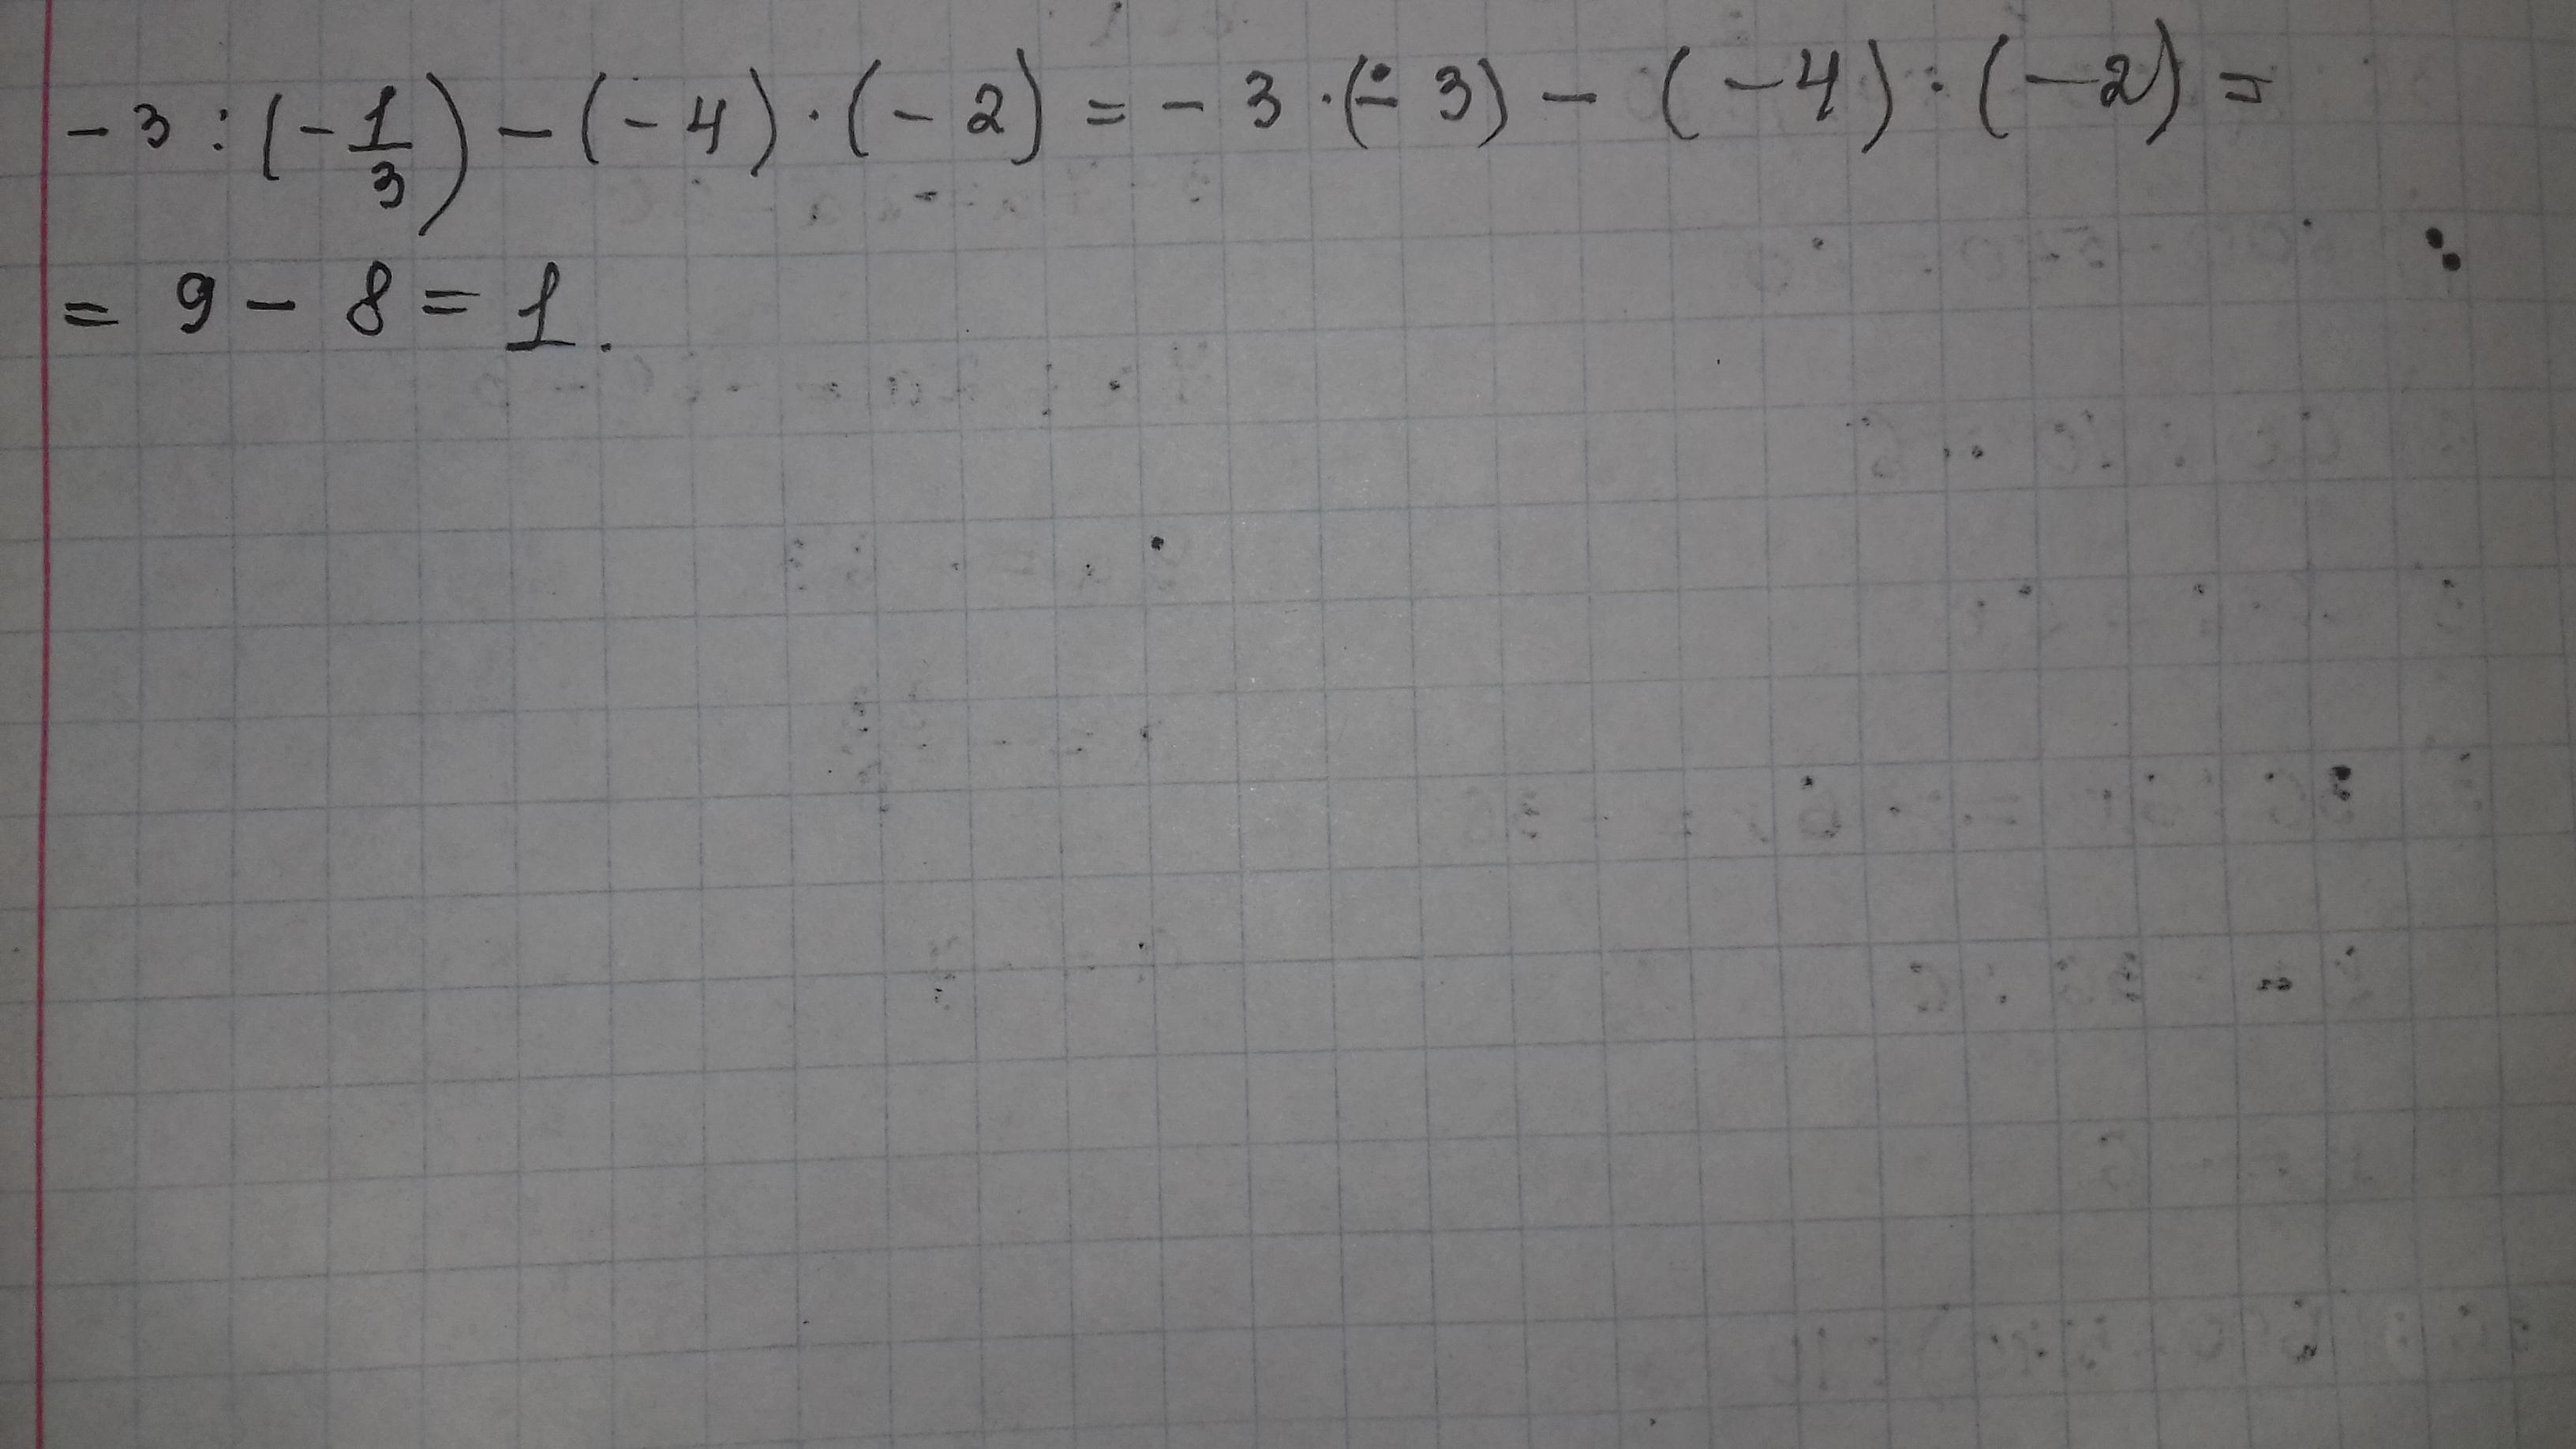 -3 : (-1/3) - (-4) · (-2) = -3 · (-3) - (-4) · (-2) =
= 9 - 8 = 1.